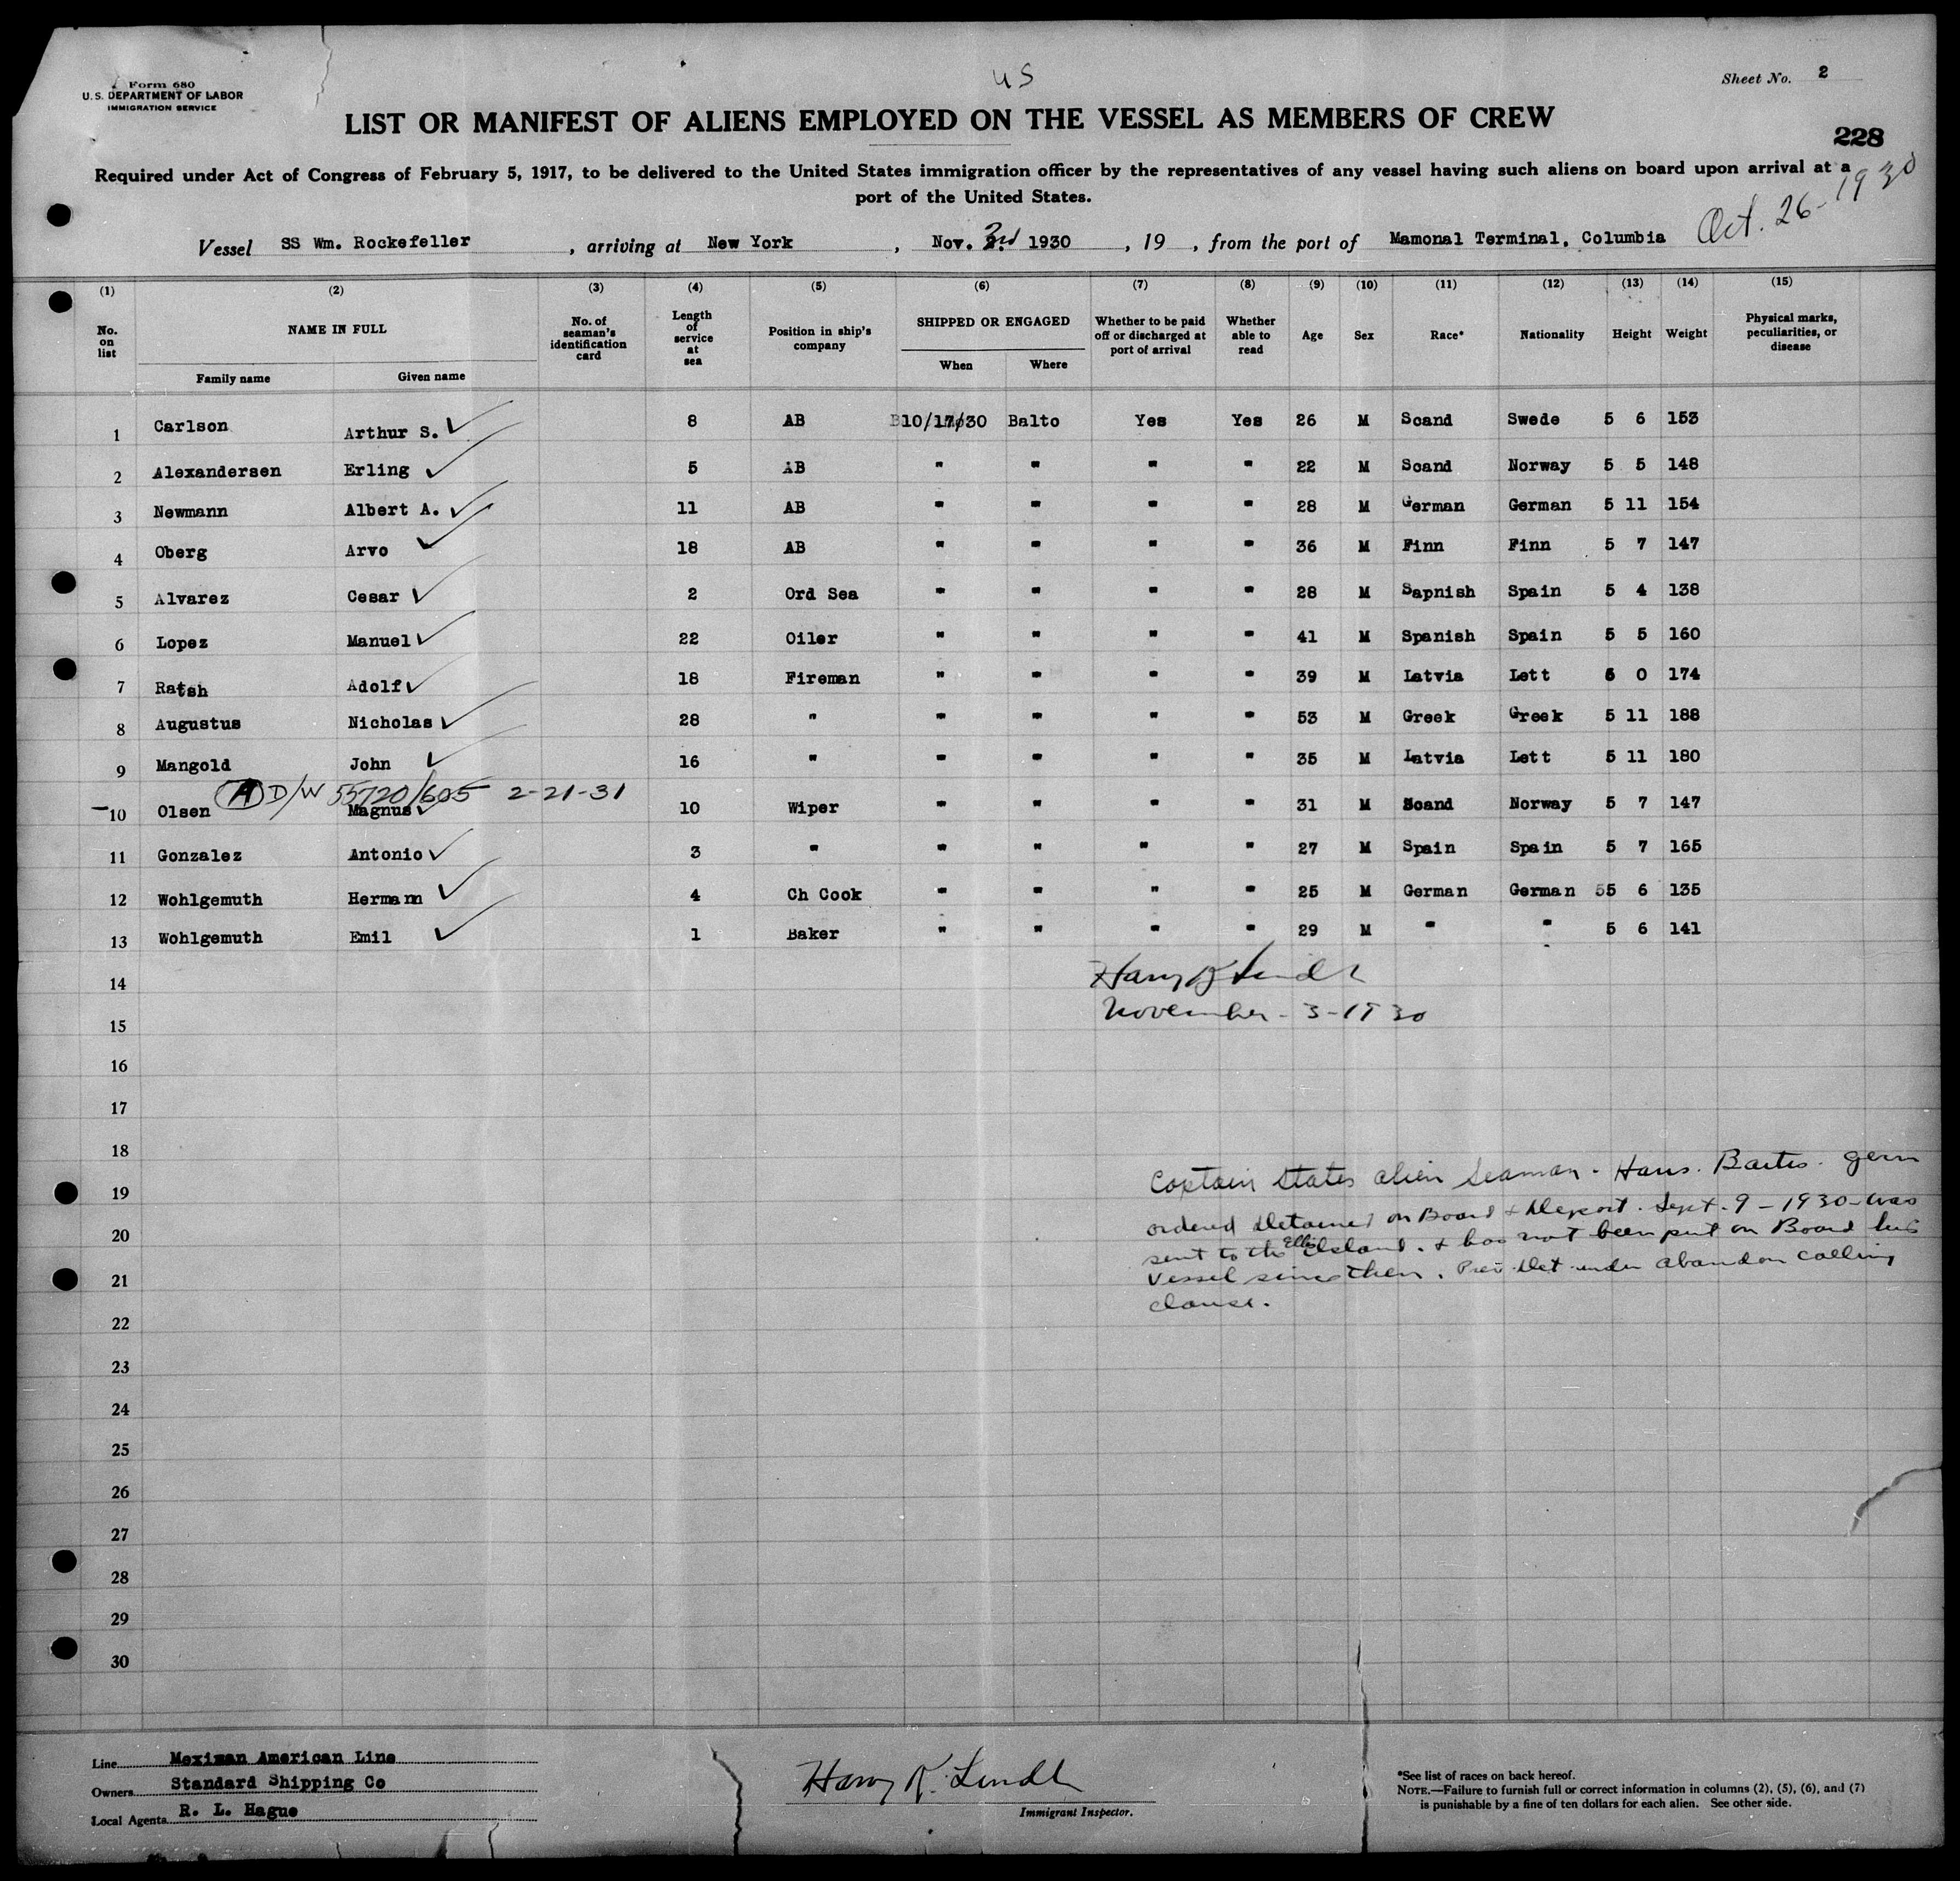 Form 680
U.S. DEPARTMENT OF LABOR
IMMIGRATION SERVICE
US
Sheet No. 2
LIST OR MANIFEST OF ALIENS EMPLOYED ON THE VESSEL AS MEMBERS OF CREW
228
Required under Act of Congress of February 5, 1917, to be delivered to the United States immigration officer by the representatives of any vessel having such aliens on board upon arrival at a
port of the United States.
Oct. 26-1930
Vessel SS Wm. Rockefeller, arriving at New York, Nov. 3rd 1930, 19, from the port of Mamonal Terminal, Columbia
(1) (2) (3) (4) (5) (6) (7) (8) (9) (10) (11) (12) (13) (14) (15)
No. on list NAME IN FULL No. of seaman's identification card Length of service at sea Position in ship's company SHIPPED OR ENGAGED Whether to be paid off or discharged at port of arrival Whether able to read Age Sex Race* Nationality Height Weight Physical marks, peculiarities, or disease
Family name Given name When Where
1 Carlson Arthur S. 8 AB 10/17/30 Balto Yes Yes 26 M Scand Swede 5 6 153
2 Alexandersen Erling 5 AB " " " " 22 M Scand Norway 5 5 148
3 Newmann Albert A. 11 AB " " " " 28 M German German 5 11 154
4 Oberg Arvo 18 AB " " " " 36 M Finn Finn 5 7 147
5 Alvarez Cesar 2 Ord Sea " " " " 28 M Sapnish Spain 5 4 138
6 Lopez Manuel 22 Oiler " " " " 41 M Spanish Spain 5 5 160
7 Ratsh Adolf 18 Fireman " " " " 39 M Latvia Lett 6 0 174
8 Augustus Nicholas 28 " " " " " 53 M Greek Greek 5 11 188
9 Mangold John 16 " " " " " 35 M Latvia Lett 5 11 180
A D/W 55720/605 2-21-31
10 Olsen Magnus 10 Wiper " " " " 31 M Scand Norway 5 7 147
11 Gonzalez Antonio 3 " " " " " 27 M Spain Spain 5 7 165
12 Wohlgemuth Hermann 4 Ch Cook " " " " 25 M German German 55 6 135
13 Wohlgemuth Emil 1 Baker " " " " 29 M " " 5 6 141
14
Harry K Lindh
November - 3-1930
15
16
17
18
19
20
21
22
23
24
25
26
27
28
29
30
Captain States alien Seaman. Hans. Germ
ordered Detained on Board & Deport. Sept. 9 - 1930 - was
sent to the Ellis Island. & has not been put on Board his
vessel since then. Det under abandon calling
clause.
Line Meximan American Line
Owners Standard Shipping Co
Local Agents R. L. Hague
Harry K. Lindh
Immigrant Inspector.
*See list of races on back hereof.
NOTE.—Failure to furnish full or correct information in columns (2), (5), (6), and (7)
is punishable by a fine of ten dollars for each alien. See other side.